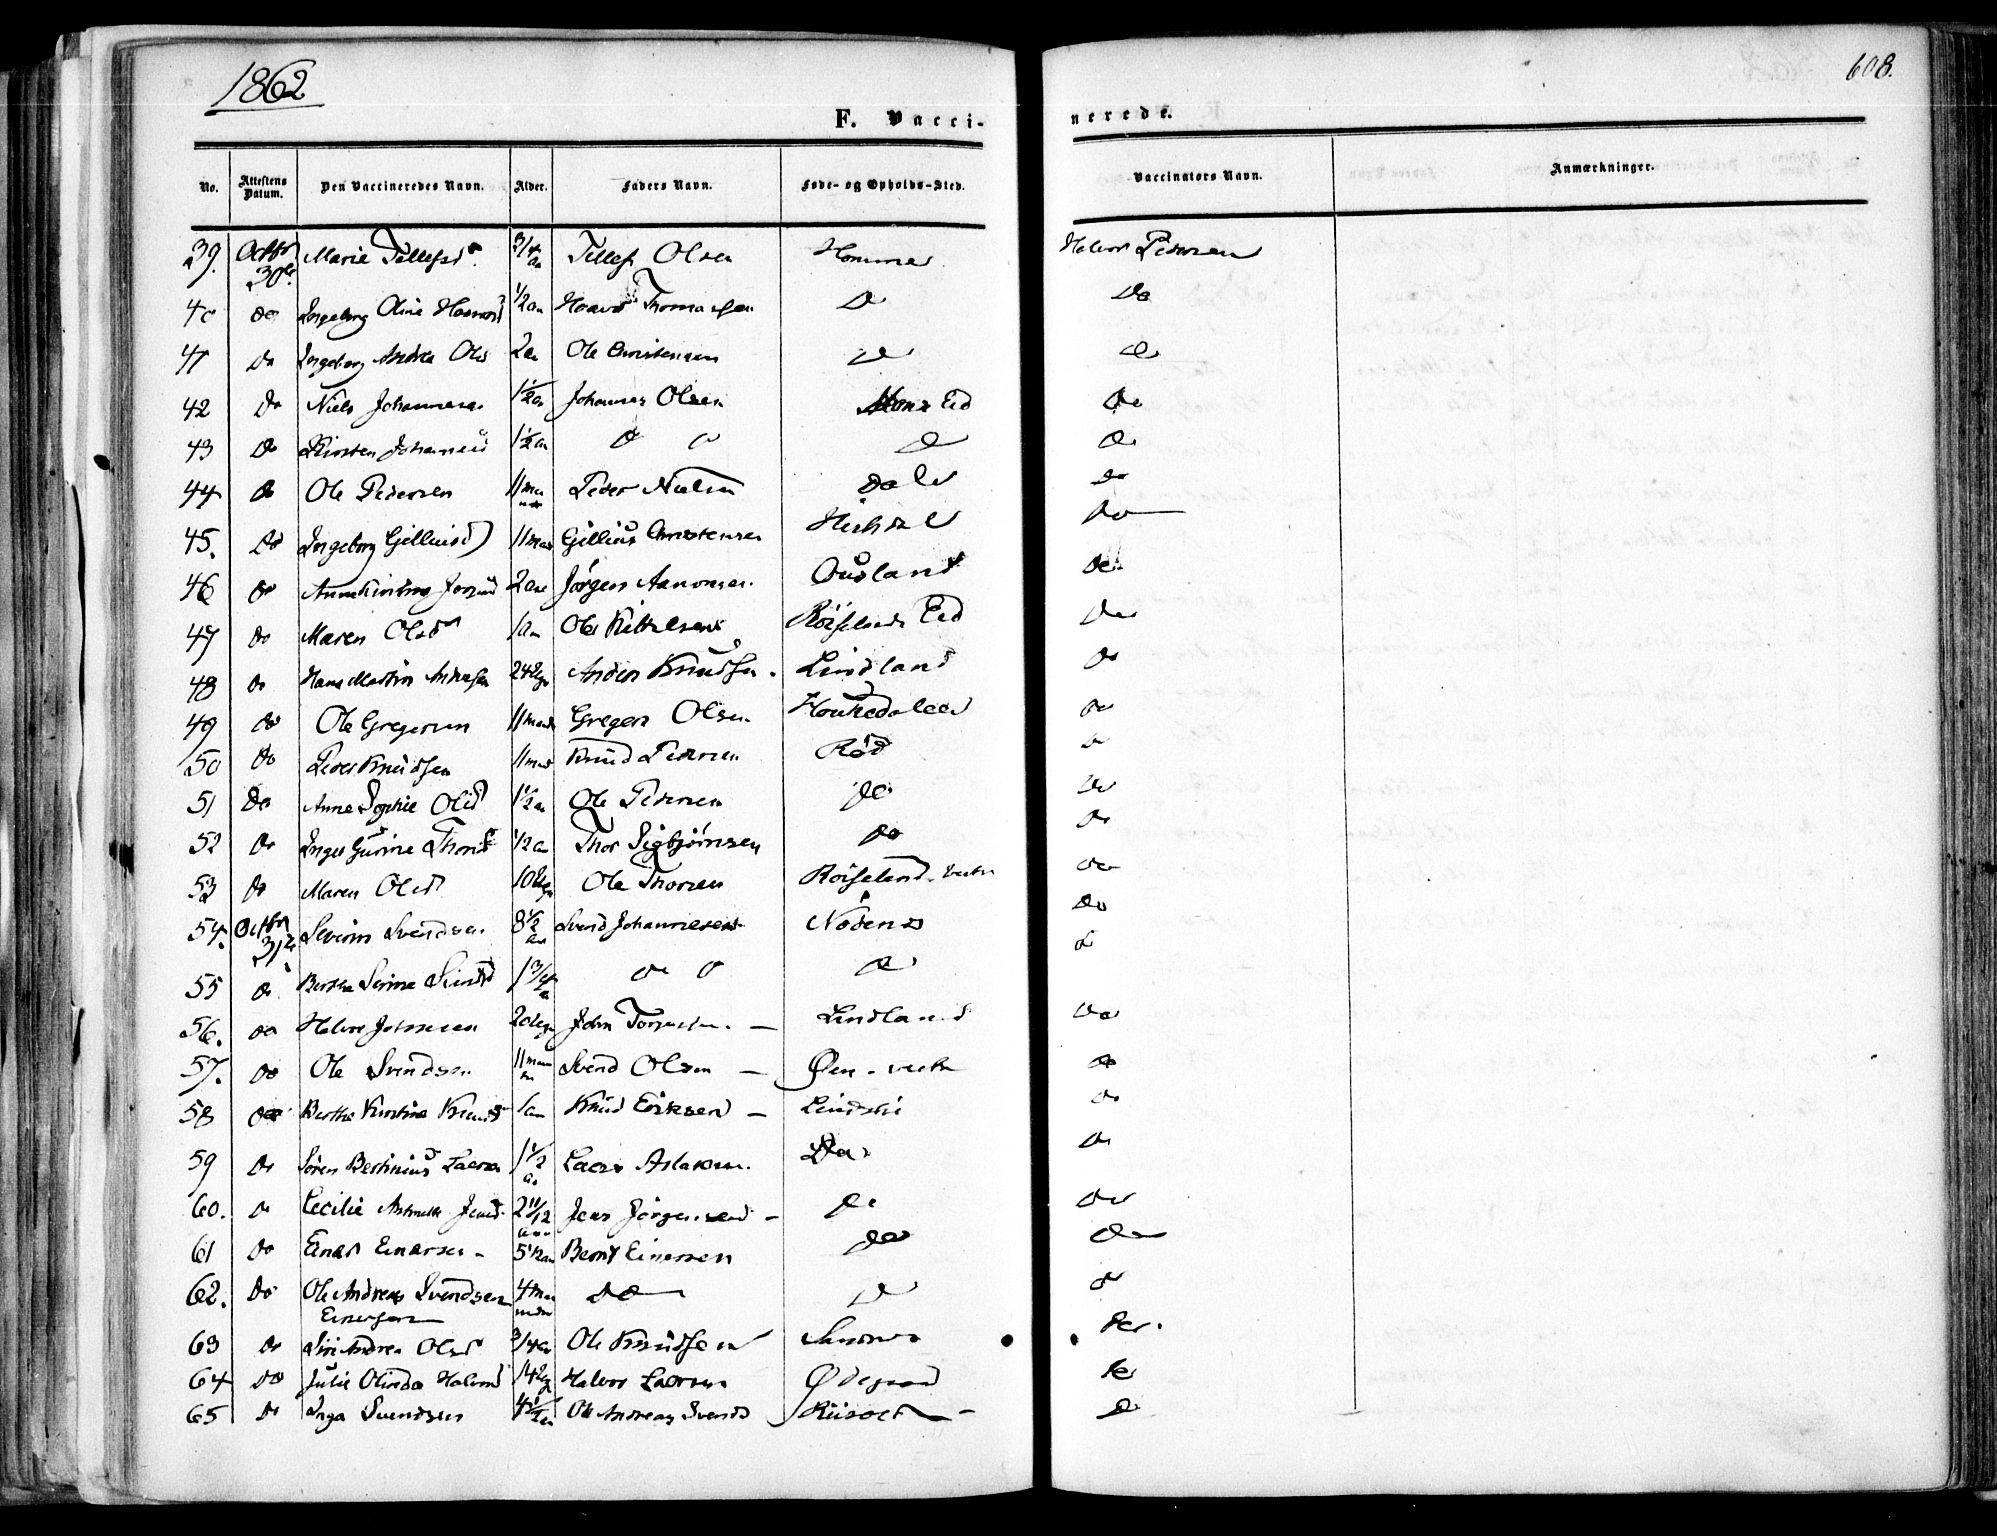 1862
608.
F. Vacci-
nerede.
No. Attestens Datum. Den Vaccineredes Navn. Alder. Faders Navn. Føde- og Opholds-Sted. Vaccinators Navn. Anmærkninger.
39. Octbr 30te Marie Tellefsd 3/4 aar Tellef Olsen Homme Halvor Pedersen
40 do Ingeborg Oline 1/2 aar Thomassen Do Do
41 Do Ingeborg Andrea Olsd 2 aar Ole Christensen Do Do
42 Do Niels Johannesen 1 1/2 aar Johannes Olsen Eid Do
43 Do Kirsten Johannesd 1 1/2 aar Do Do Do Do
44 Do Ole Pedersen 11 maaneder Peder Nielsen Dale Do
45. Do Ingeborg Gelliusd 11 maad Gellius Christensen Do
46 Do Anne Kirstine 2 aar Jørgen Aanonsen Ousland Do
47 Do Maren Olsd 1 aar Ole Kittelsen Røiseland Eid Do
48 Do Hans Martin Andersen 24 Uger Anders Knudsen Lindland Do
49 Do Ole Gregersen 11 maad Gregers Olsen Do
50 Do Peder Knudsen 11 maad Knud Pedersen Rød Do
51 Do Anne Sophie Olsd 1 1/2 aar Ole Pedersen Do Do
52 Do Gurine Thorsd 1/2 aar Thor Sigbjørnsen Do Do
53 Do Maren Olsd 10 Uger Ole Thorsen Røiseland vestre Do
54. Octbr 31te Svendsen 8 1/2 aar Svend Johannesen Nødenes Do
55 Do Berthe Serine Svendsd 1 3/4 aar Do Do Do Do
56. Do Halvor Johnsen 20 Uger John Lindland Do
57. Do Ole Svendsen 11 maaneder Svend Olsen - Øen - vestre Do
58 Do Berthe Kirstine Knudsd 1 aar Knud Eriksen - Do
59 Do Søren Bertinius Larsen 1 1/2 aar Lars Aslaksen Do Do
60. Do Cecilie Antonette Jensd 2 11/12 aar Jens Jørgensen - Do Do
61 Do Einar Einersen - 5 1/2 aar Bernt Einersen Do Do
62. Do Ole Andreas Svendsen 4 maaneder Do Do Do
Einersen
63 Do Siri Andrea Olsd 3/4 aar Ole Knudsen Do
64 Do Julie Olinda Halvorsd 14 Ug Halvor Larsen Ødegaard Do
65 Do Inga Svendsen 4 1/2 aar Ole Andreas Svends Do